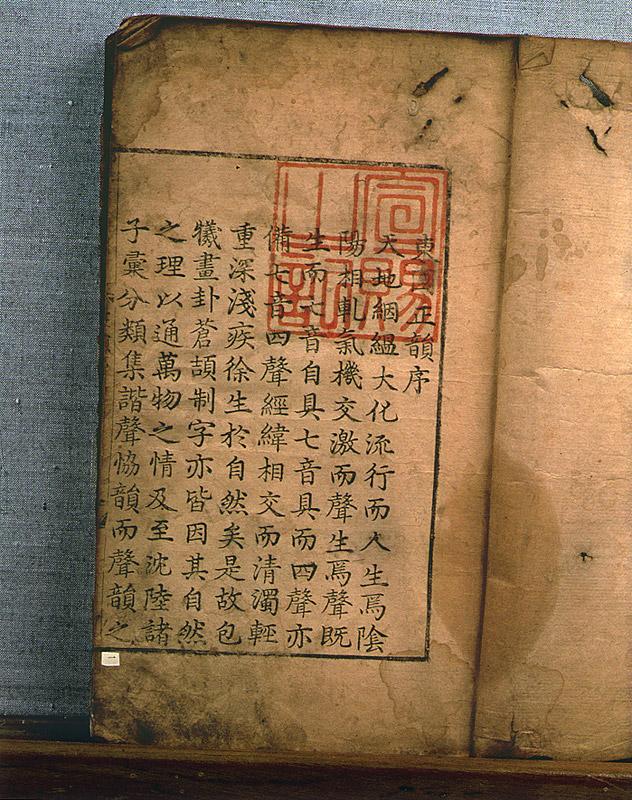 東國正韻序
天地絪縕大化流行而人生焉陰
陽相軋氣機交激而聲生焉聲既
生而七音自具七音具而四聲亦
備七音四聲經緯相交而清濁輕
重深淺疾徐生於自然矣是故包
犧畫卦蒼頡制字亦皆因其自然
之理以通萬物之情及至沈陸諸
子彙分類集諧聲恊韻而聲韻之
宣賜
之記
一